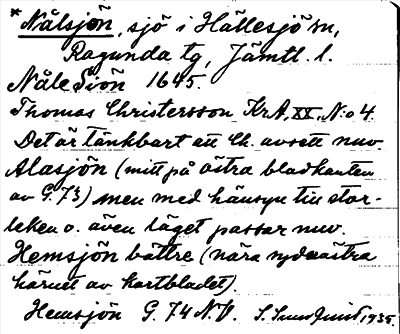 * Nålsjön, sjö i Hällesjö sn,
Ragunda tg, Jämtl. l.
Nåle Siön 1645.
Thomas Christersson KrA, XX, No 4.
Det är tänkbart att Ch. avsett nuv.
Alasjön (mitt på östra bladkanten
av G. 73) men med hänsyn till stor-
leken o. även läget passar nuv.
Hemsjön bättre (nära sydvästra
hörnet av kartbladet).
Hemsjön G. 74 N.V. 1935.